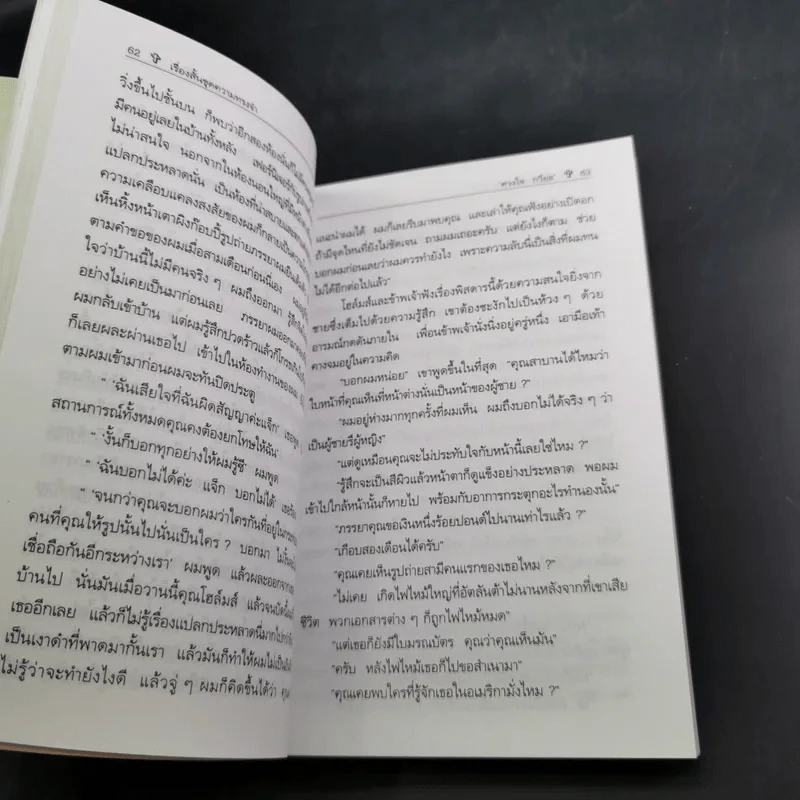 62 เรื่องสั้นชุดความทรงจำ
วิ่งขึ้นไปชั้นบน ก็พบว่าอีกสองห้องนั่น
มีคนอยู่เลยในบ้านทั้งหลัง เฟอร์นิเจอร์
ไม่น่าสนใจ นอกจากในห้องนอนใหญ่ที่มี
แปลกประหลาดนั่น เป็นห้องที่น่าสบายและ
ความเคลือบแคลงสงสัยของผมก็กลายเป็น
เห็นหิ้งหน้าเตาผิงก๊อปปี้รูปถ่ายภรรยาผมยืน
ตามคำขอของผมเมื่อสามเดือนก่อนนี่เอง
ใจว่าบ้านนี้ไม่มีคนจริง ๆ ผมถึงออกมา รู้สึก
อย่างไม่เคยเป็นมาก่อนเลย ภรรยาผมออกมา
ผมกลับเข้าบ้าน แต่ผมรู้สึกปวดร้าวแล้วก็โกรธ
ก็เลยผละผ่านเธอไป เข้าไปในห้องทำงานของ
ตามผมเข้ามาก่อนผมจะทันปิดประตู
" 'ฉันเสียใจที่ฉันผิดสัญญาค่ะแจ็ก'
สถานการณ์ทั้งหมดคุณคงต้องยกโทษให้ฉัน'
" 'งั้นก็บอกทุกอย่างให้ผมรู้ซี' ผมพูด
" 'ฉันบอกไม่ได้ค่ะ แจ็ก บอกไม่ได้'
" 'จนกว่าคุณจะบอกผมว่าใครกันที่อยู่ใน
คนที่คุณให้รูปนั้นไปนั่นเป็นใคร ? บอกมา
เชื่อถือกันอีกระหว่างเรา' ผมพูด แล้วผละออกจาก
บ้านไป นั่นมันเมื่อวานนี้คุณโฮล์มส์
เธออีกเลย แล้วก็ไม่รู้เรื่องแปลกประหลาดนี่มากไปกว่า
เป็นเงาดำที่พาดมากั้นเรา แล้วมันก็ทำให้ผม
ไม่รู้ว่าจะทำยังไงดี แล้วจู่ ๆ ผมก็คิดขึ้นได้ว่า
63
แนะนำผมได้ ผมก็เลยรีบมาพบคุณ และเล่าให้คุณฟังอย่างเปิดอก
ถ้ามีจุดไหนที่ยังไม่ชัดเจน ถามผมเถอะครับ แต่ยังไงก็ตาม ช่วย
บอกผมก่อนเลยว่าผมควรทำยังไง เพราะความลับนี้เป็นสิ่งที่ผมทน
ไม่ได้อีกต่อไปแล้ว"
โฮล์มส์และข้าพเจ้าฟังเรื่องพิสดารนี้ด้วยความสนใจยิ่งจาก
ชายซึ่งเต็มไปด้วยความรู้สึก เขาต้องชะงักไปเป็นห้วง ๆ ด้วย
อารมณ์กดดันภายใน เพื่อนข้าพเจ้านั่งนิ่งอยู่ครู่หนึ่ง เอามือเท้า
คางจมอยู่ในความคิด
"บอกผมหน่อย" เขาพูดขึ้นในที่สุด "คุณสาบานได้ไหมว่า
ใบหน้าที่คุณเห็นที่หน้าต่างนั่นเป็นหน้าของผู้ชาย ?"
"ผมอยู่ห่างมากทุกครั้งที่ผมเห็น ผมถึงบอกไม่ได้จริง ๆ ว่า
เป็นผู้ชายรึผู้หญิง"
"แต่ดูเหมือนคุณจะไม่ประทับใจกับหน้านี้เลยใช่ไหม ?"
"รู้สึกจะเป็นสีผิวแล้วหน้าตาก็ดูแข็งอย่างประหลาด พอผม
เข้าไปใกล้หน้านั้นก็หายไป พร้อมกับอาการกระตุกอะไรทำนองนั้น"
"ภรรยาคุณขอเงินหนึ่งร้อยปอนด์ไปนานเท่าไรแล้ว ?"
"เกือบสองเดือนได้ครับ"
"คุณเคยเห็นรูปถ่ายสามีคนแรกของเธอไหม ?"
"ไม่เคย เกิดไฟไหม้ใหญ่ที่อัตลันต้าไม่นานหลังจากที่เขาเสีย
ชีวิต พวกเอกสารต่าง ๆ ก็ถูกไฟไหม้หมด"
"แต่เธอก็ยังมีใบมรณบัตร คุณว่าคุณเห็นมัน"
"ครับ หลังไฟไหม้เธอก็ไปขอสำเนามา"
"คุณเคยพบใครที่รู้จักเธอในอเมริกามั่งไหม ?"